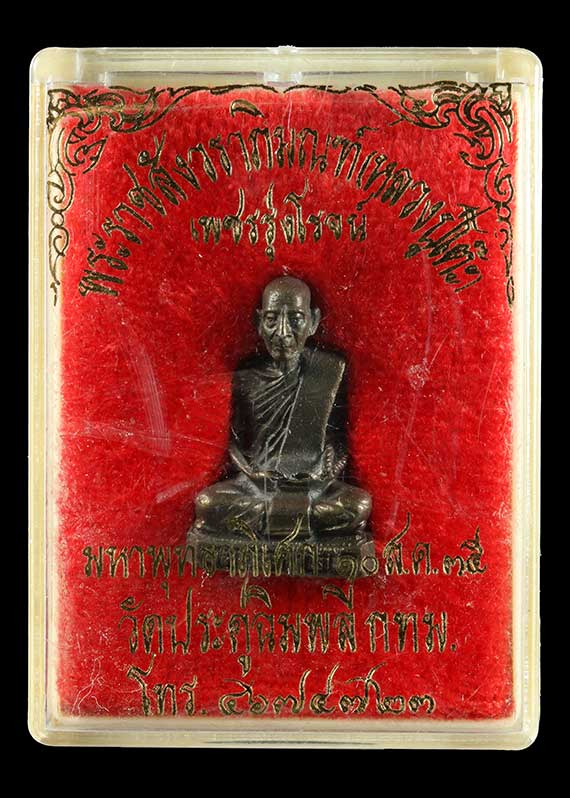 พระราชสังวราภิมณฑ์(หลวงปู่โต๊ะ)
เพชรรุ่งโรจน์
มหาพุทธาภิเศก ๑๐ ส.ค. ๓๕
วัดประดู่ฉิมพลี กทม.
โทร. ๔๖๗๕๗๒๓